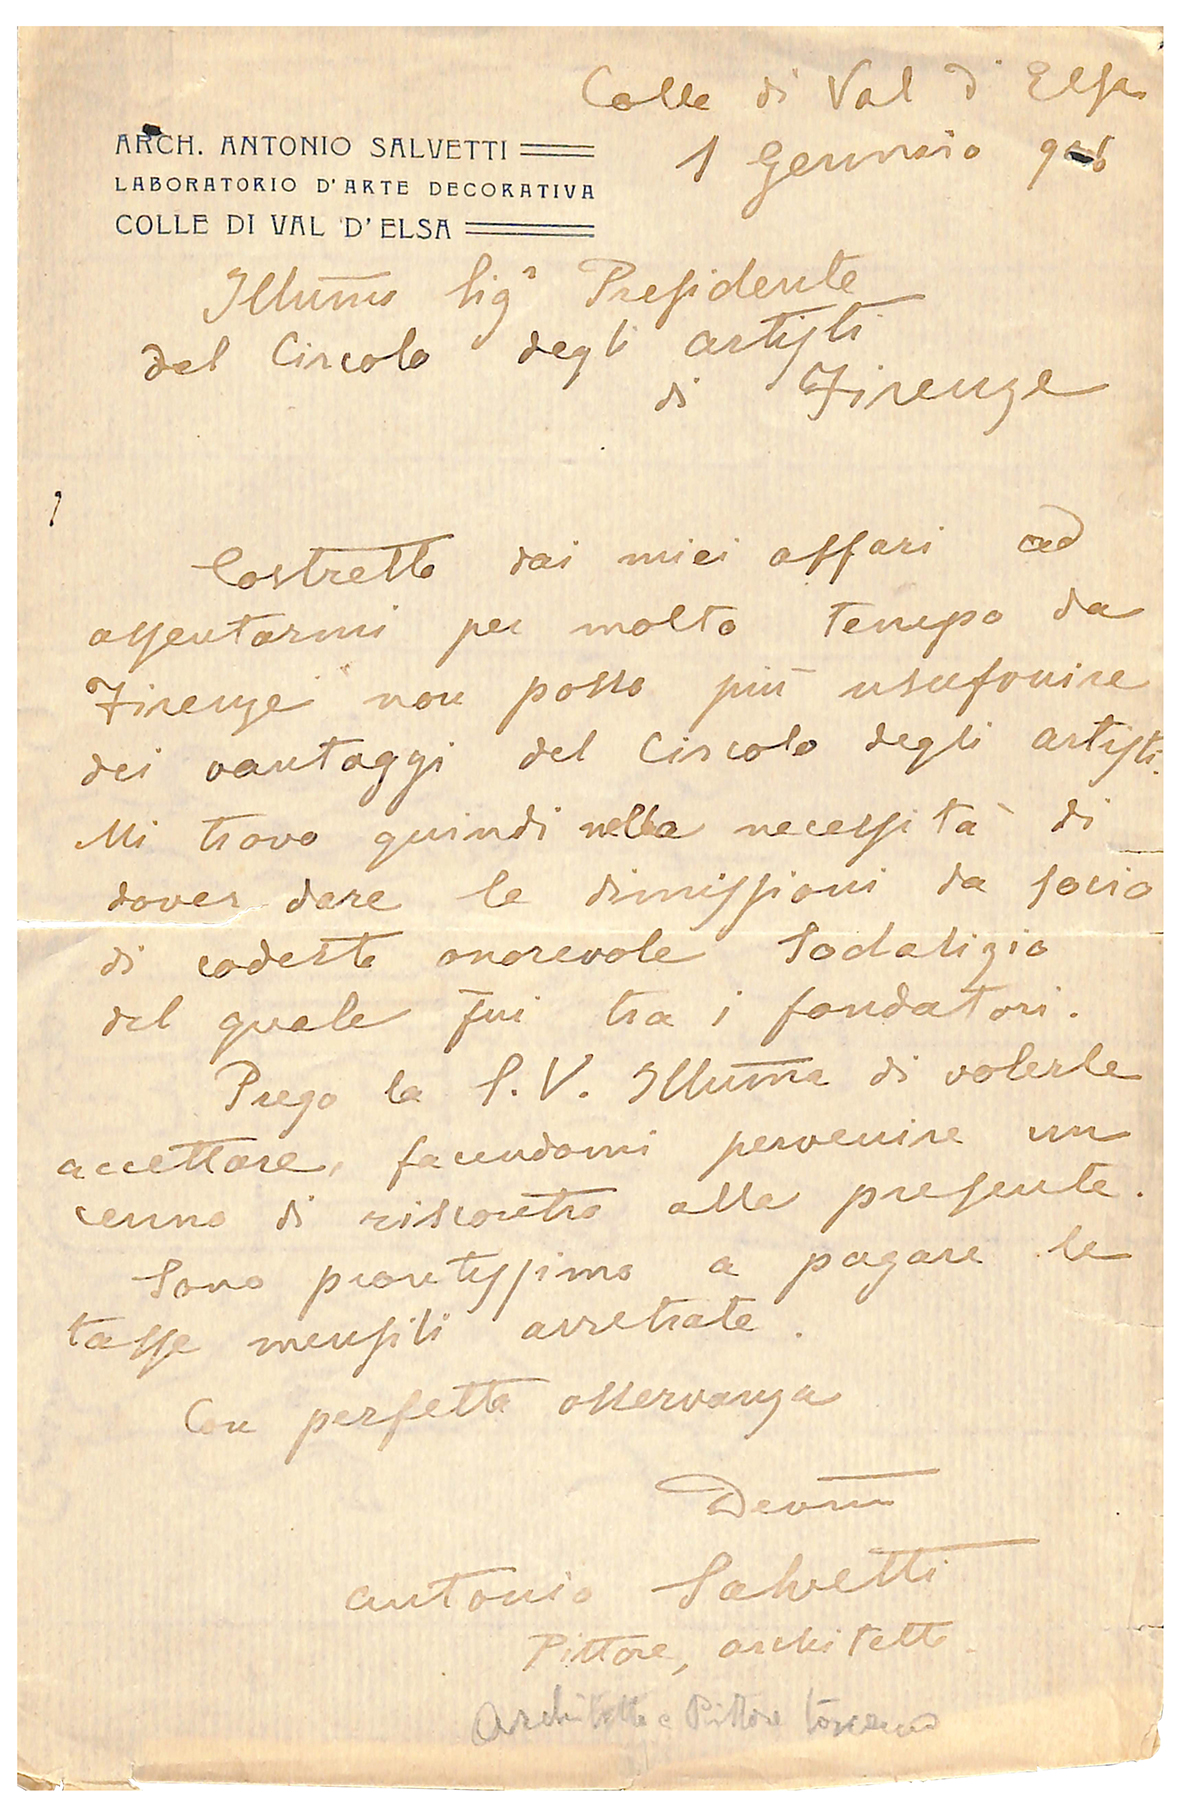 Colle di Val d' Elsa
ARCH. ANTONIO SALVETTI
1 Gennaio
LABORATORIO D'ARTE DECORATIVA
COLLE DI VAL D'ELSA
Illumo Sigr Presidente
del Circolo degli artisti
di Firenze
Costretto dai miei affari ad
assentarmi per molto tempo da
Firenze non posso più usufruire
dei vantaggi del Circolo degli artisti.
Mi trovo quindi nella necessità di
dover dare le dimissioni da socio
di codesto onorevole Sodalizio
del quale fui tra i fondatori.
Prego la S. V. Illuma di volerle
accettare, facendomi pervenire un
cenno di riscontro alla presente.
Sono prontissimo a pagare le
tasse mensili arretrate.
Con perfetta osservanza
Devmo
Antonio Salvetti
Pittore, architetto
Architetto e Pittore toscano